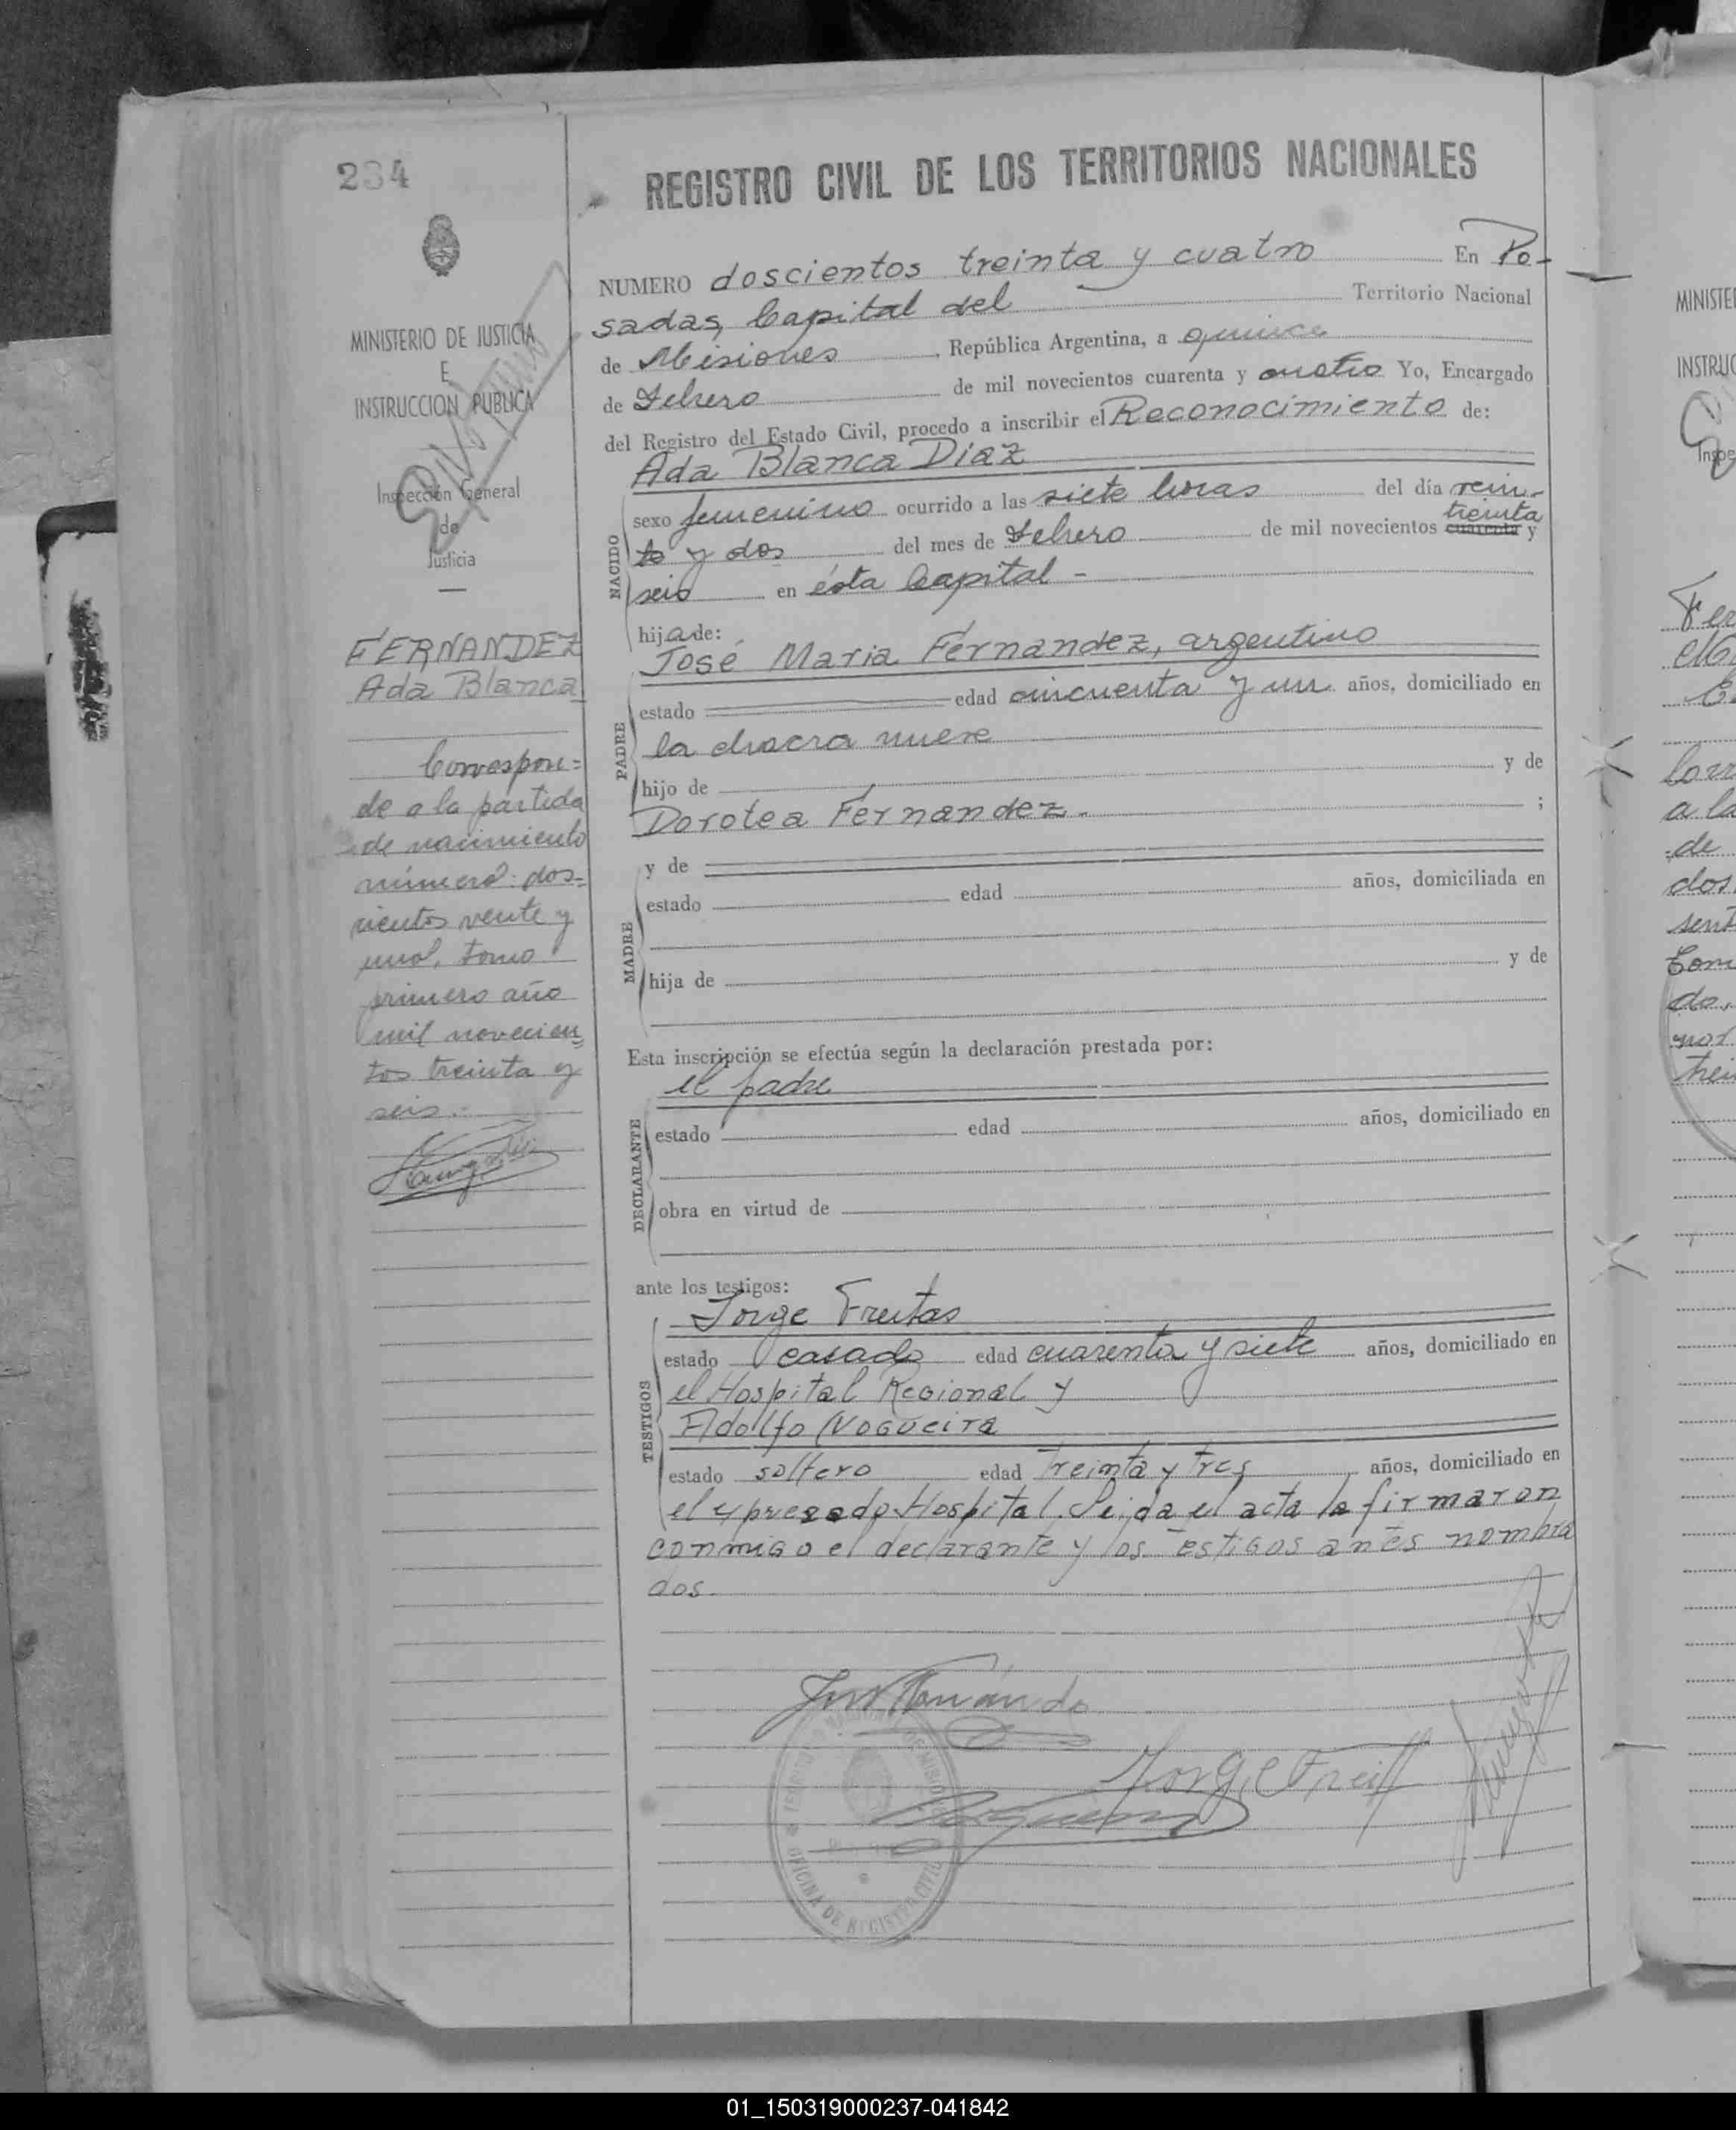 234
MINISTERIO DE JUSTICIA
E
INSTRUCCION PUBLICA
Inspección General
de
Justicia
FERNANDEZ
Ada Blanca
Correspon=
de a la partida
de nacimiento
número: dos-
cientos veinte y
uno, tomo
primero año
mil novecien
tos treinta y
seis.-
REGISTRO CIVIL DE LOS TERRITORIOS NACIONALES
NUMERO doscientos treinta y cuatro En Po-
sadas, Capital del Territorio Nacional
de Misiones, República Argentina, a quince
de Febrero de mil novecientos cuarenta y cuatro Yo, Encargado
del Registro del Estado Civil, procedo a inscribir el Reconocimiento de:
Ada Blanca Díaz
NACIDO
sexo femenino ocurrido a las siete horas del día vein-
treinta
te y dos del mes de Febrero de mil novecientos cuarenta y
seis en ésta Capital -
hija de:
José Maria Fernandez, argentino
PADRE
estado edad cincuenta y un años, domiciliado en
la chacra nueve
hijo de y de
Dorotea Fernandez.- ;
MADRE
y de
estado edad años, domiciliada en
hija de y de
Esta inscripción se efectúa según la declaración prestada por:
el padre
DECLARANTE
estado edad años, domiciliado en
obra en virtud de
ante los testigos:
Jorge Freitas
TESTIGOS
estado casado edad cuarenta y siete años, domiciliado en
el Hospital Regional y
Adolfo Nogueira
estado soltero edad treinta y tres años, domiciliado en
el expresado Hospital. Leida el acta la firmaron
conmigo el declarante y los testigos antes nombra
dos.
Jorge Freit
OFICINA DE REGISTRO CIVIL
MINISTE
INSTRUC
Inspe
01_150319000237-041842